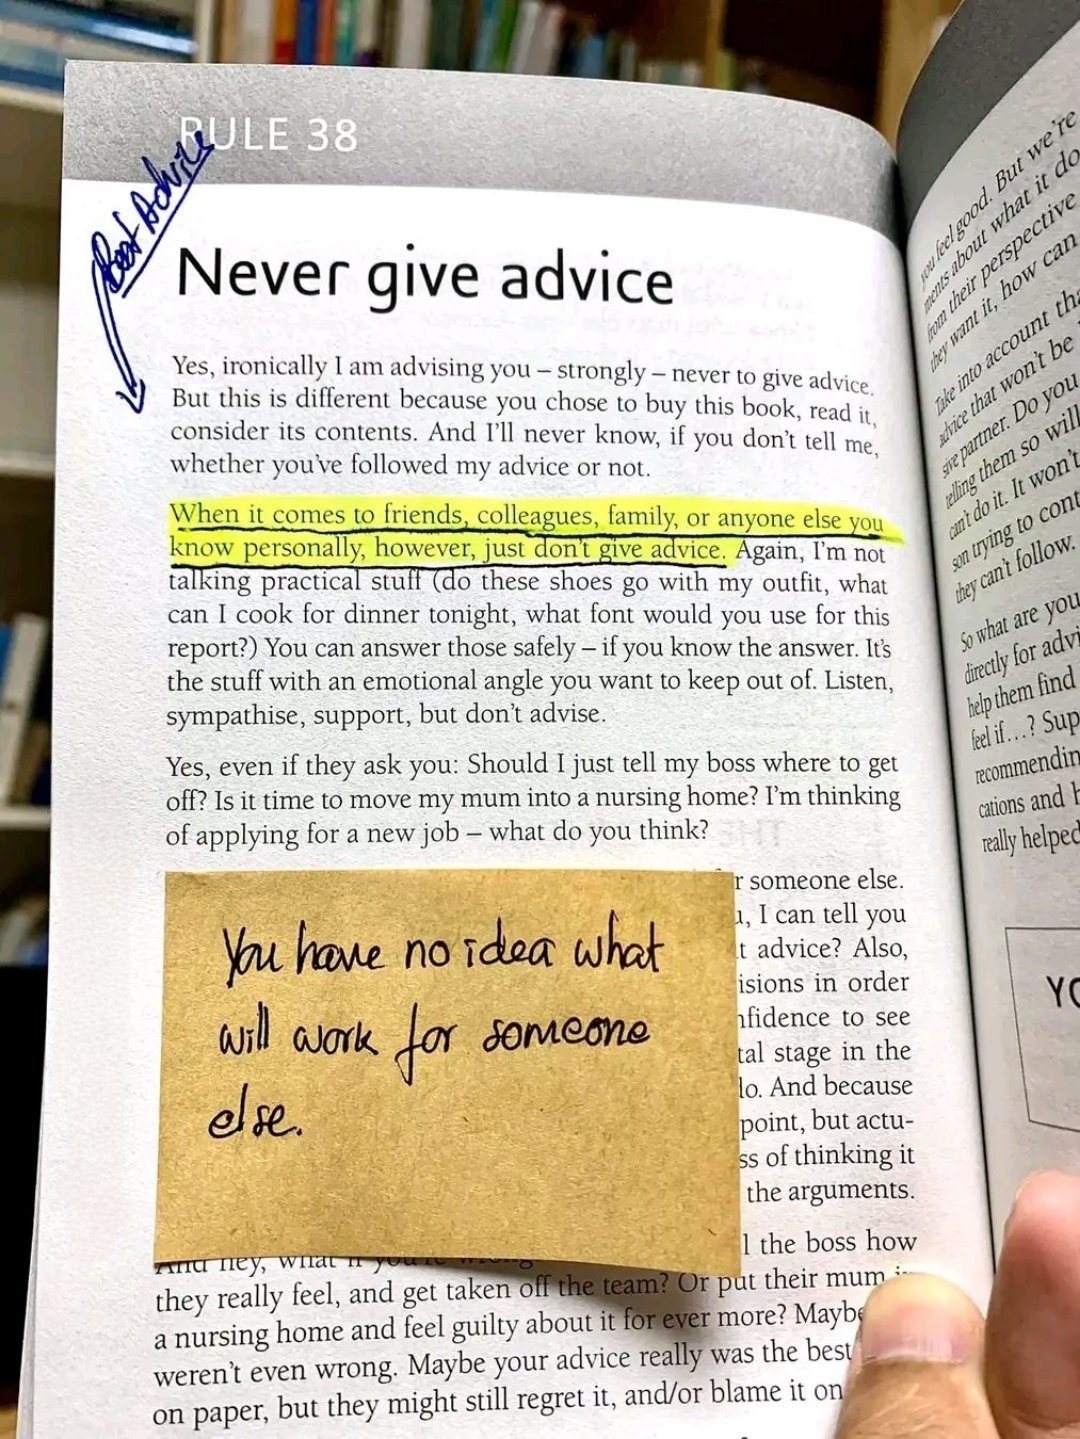 RULE 38
Best Advice
Never give advice
Yes, ironically I am advising you – strongly – never to give advice.
But this is different because you chose to buy this book, read it,
consider its contents. And I'll never know, if you don't tell me,
whether you've followed my advice or not.
When it comes to friends, colleagues, family, or anyone else you
know personally, however, just don't give advice. Again, I'm not
talking practical stuff (do these shoes go with my outfit, what
can I cook for dinner tonight, what font would you use for this
report?) You can answer those safely – if you know the answer. It's
the stuff with an emotional angle you want to keep out of. Listen,
sympathise, support, but don't advise.
Yes, even if they ask you: Should I just tell my boss where to get
off? Is it time to move my mum into a nursing home? I'm thinking
of applying for a new job – what do you think?
You have no idea what
will work for someone
else.
someone else.
I can tell you
advice? Also,
in order
to see
stage in the
And because
point, but actu-
of thinking it
the arguments.
the boss how
they really feel, and get taken off the team? Or put their mum
a nursing home and feel guilty about it for ever more? Maybe
weren't even wrong. Maybe your advice really was the best
on paper, but they might still regret it, and/or blame it on
you feel good. But we're
about what it do
from their perspective
they want it, how can
Take into account
advice that won't be
partner. Do you
telling them so will
can't do it. It won't
son trying to cont
they can't follow.
So what are you
directly for advi
help them find
feel if…? Sup
recommendin
cations and
really helped
YO